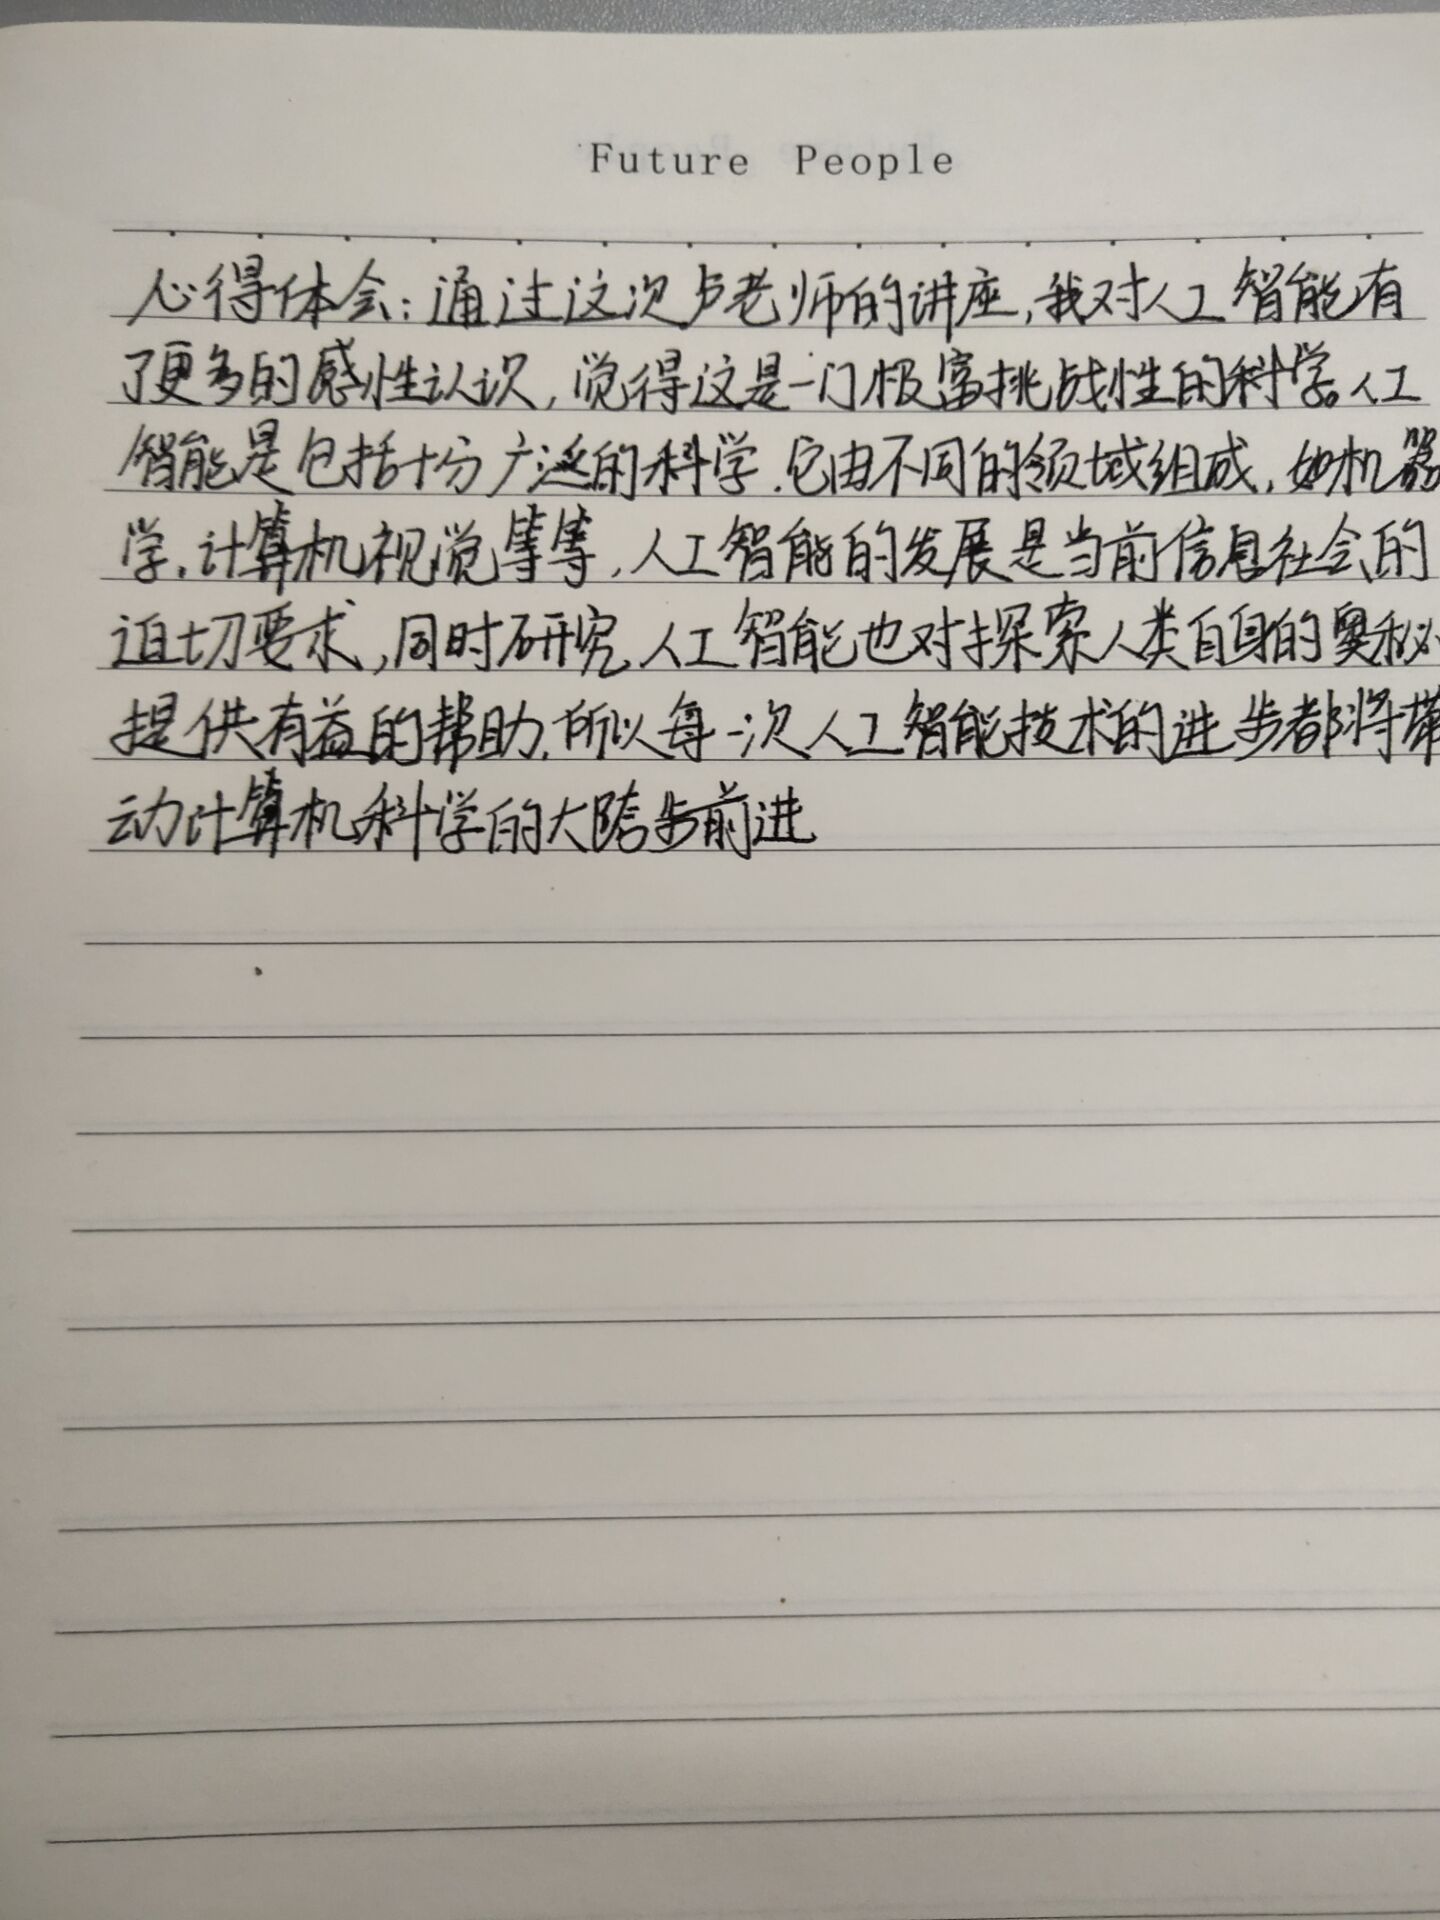 Future People
心得体会:通过这次卢老师的讲座,我对人工智能有
了更多的感性认识,觉得这是一门极富挑战性的科学。人工
智能是包括十分广泛的科学.它由不同的领域组成,如机器
学.计算机视觉等等,人工智能的发展是当前信息社会的
迫切要求,同时研究人工智能也对探索人类自身的奥秘
提供有益的帮助.所以每一次人工智能技术的进步都将带
动计算机科学的大跨步前进